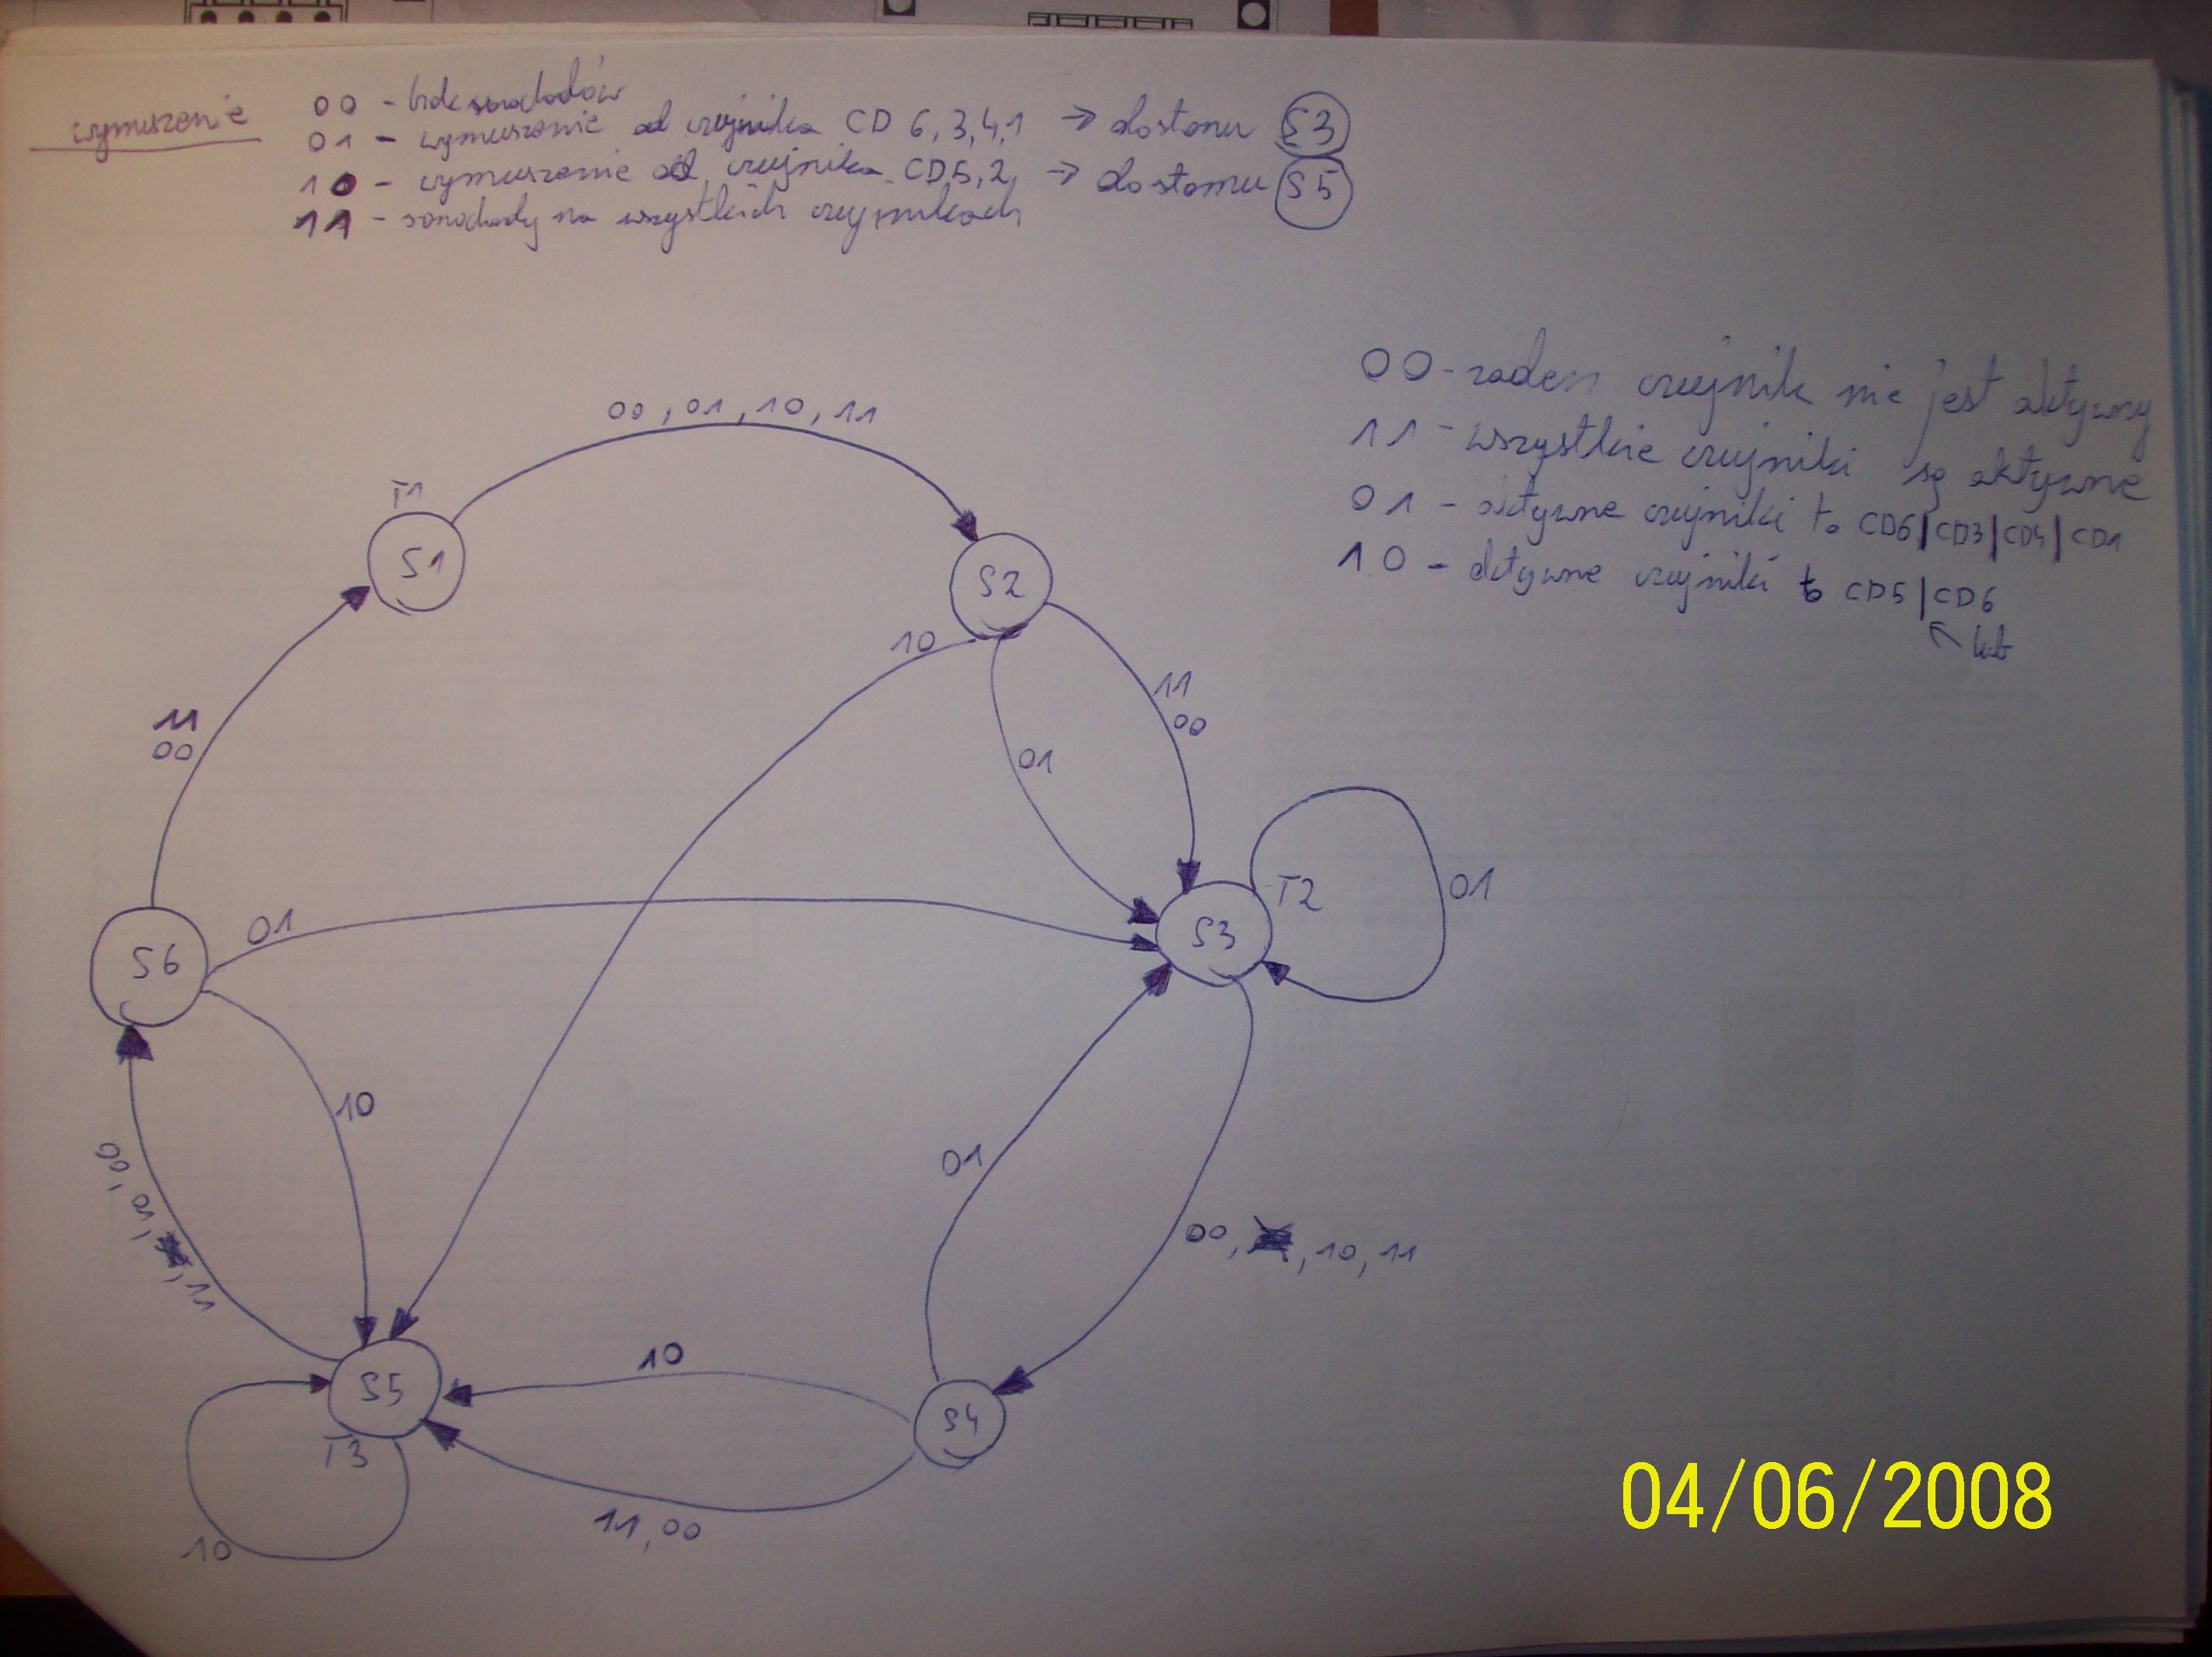 wymuszenie
00 - brak samochodów
01 - wymuszenie od czujnika CD 6,3,4,1 → dostanu S3
10 - wymuszenie od czujnika CD5,2 → dostanu S5
11 - samochody na wszystkich czujnikach
00 - zaden czujnik nie jest aktywny
11 - wszystkie czujniki są aktywne
01 - aktywne czujniki to CD6|CD3|CD4|CD1
10 - aktywne czujniki to CD5|CD6
↖ lub
00, 01, 10, 11
T1
S1
S2
10
11
00
11
00
01
T2
01
S3
01
S6
10
01
00, 10, 11
00, 01, 11
10
S5
S4
T3
11,00
10
04/06/2008